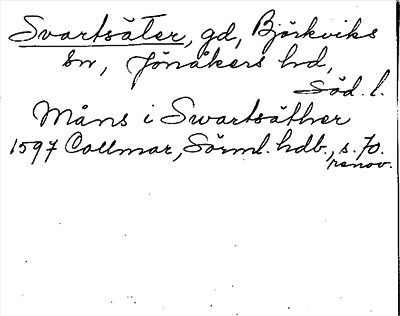 Svartsäter, gd, Björkviks
sn, Jönåkers hd,
Söd. l.
Måns i Swartsäther
1597 Collmar, Sörml. hdb., s. 70.
renov.